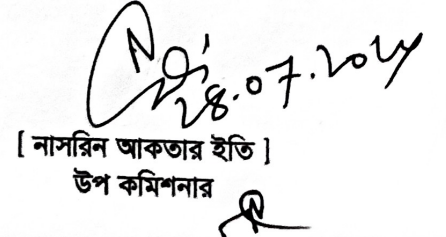 28.07.2024
[ নাসরিন আকতার ইতি ]
উপ কমিশনার